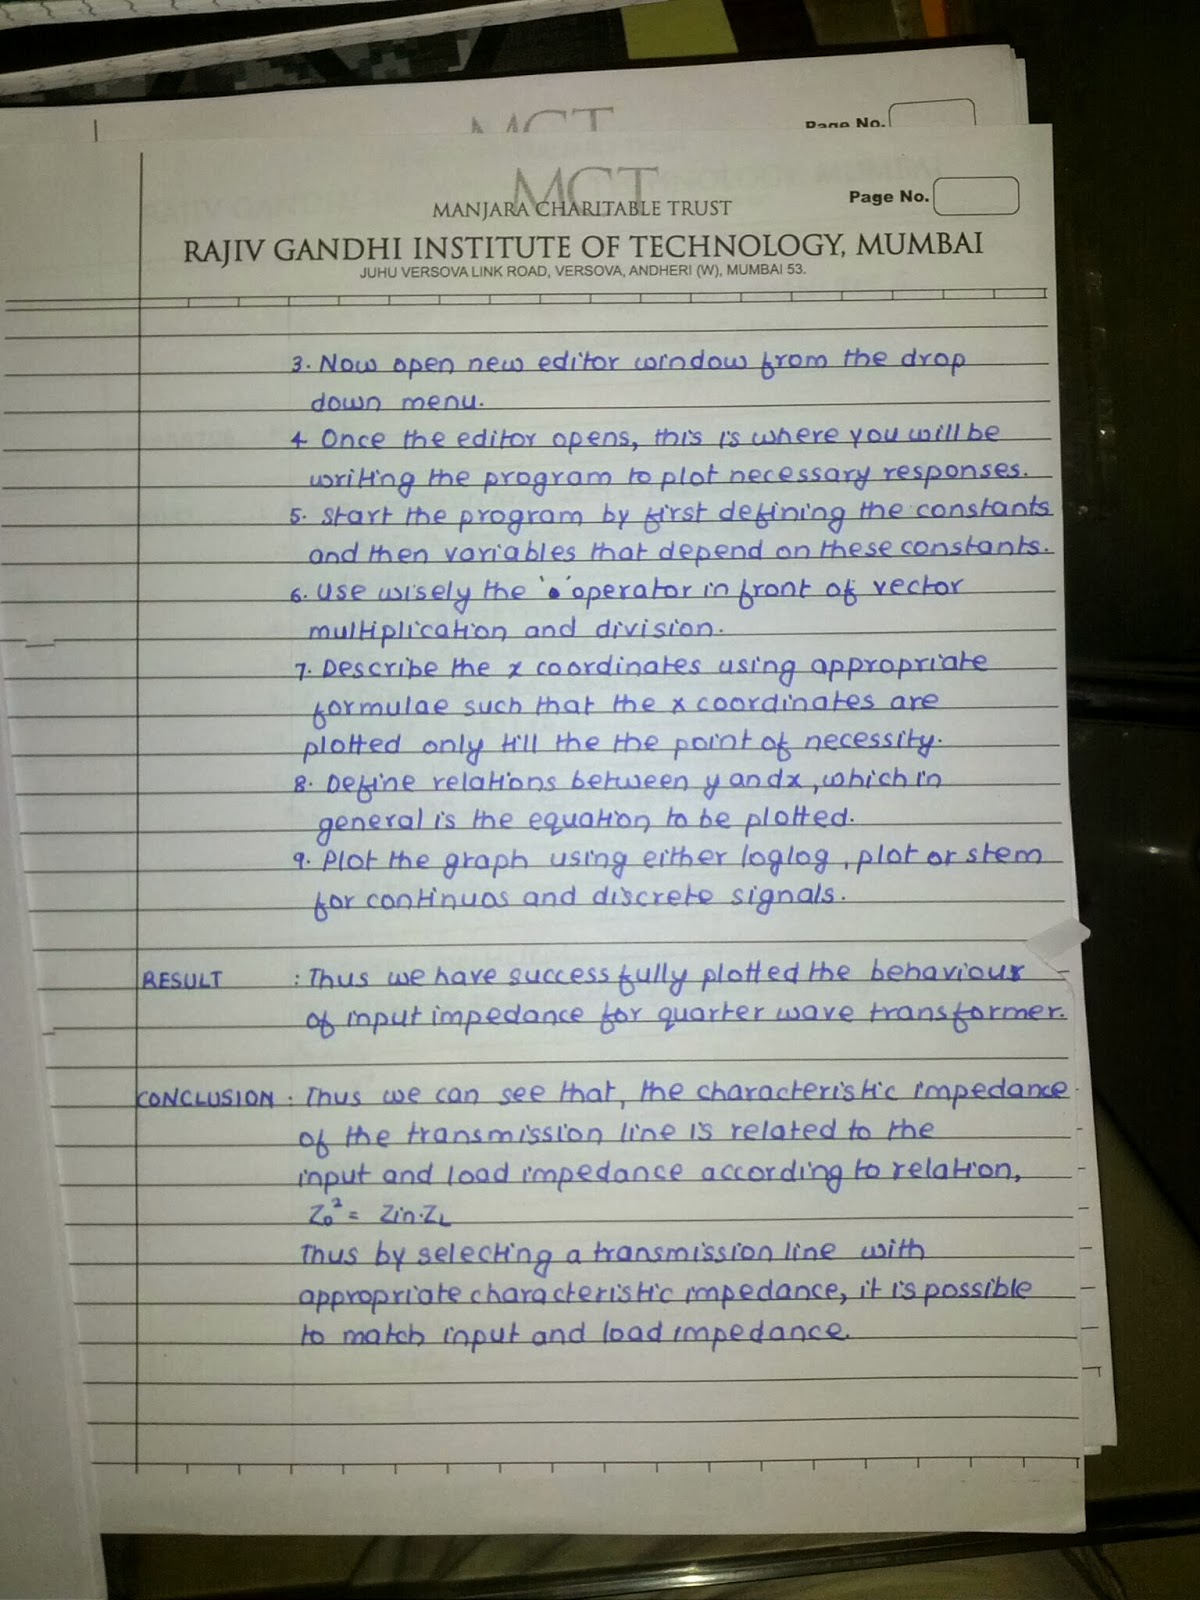 MCT
Page No.
MCT
Page No.
MANJARA CHARITABLE TRUST
RAJIV GANDHI INSTITUTE OF TECHNOLOGY, MUMBAI
JUHU VERSOVA LINK ROAD, VERSOVA, ANDHERI (W), MUMBAI 53.
3. Now open new editor window from the drop
down menu.
4 Once the editor opens, this is where you will be
writing the program to plot necessary responses.
5. Start the program by first defining the constants
and then variables that depend on these constants.
6. Use wisely the '.' operator in front of vector
multiplication and division.
7. Describe the x coordinates using appropriate
formulae such that the x coordinates are
plotted only till the the point of necessity.
8. Define relations between y and x, which in
general is the equation to be plotted.
9. Plot the graph using either loglog, plot or stem
for continuos and discrete signals.
RESULT : Thus we have successfully plotted the behaviour
of input impedance for quarter wave transformer.
CONCLUSION : Thus we can see that, the characteristic impedance
of the transmission line is related to the
input and load impedance according to relation,
Z₀² = Zin.ZL
Thus by selecting a transmission line with
appropriate characteristic impedance, it is possible
to match input and load impedance.